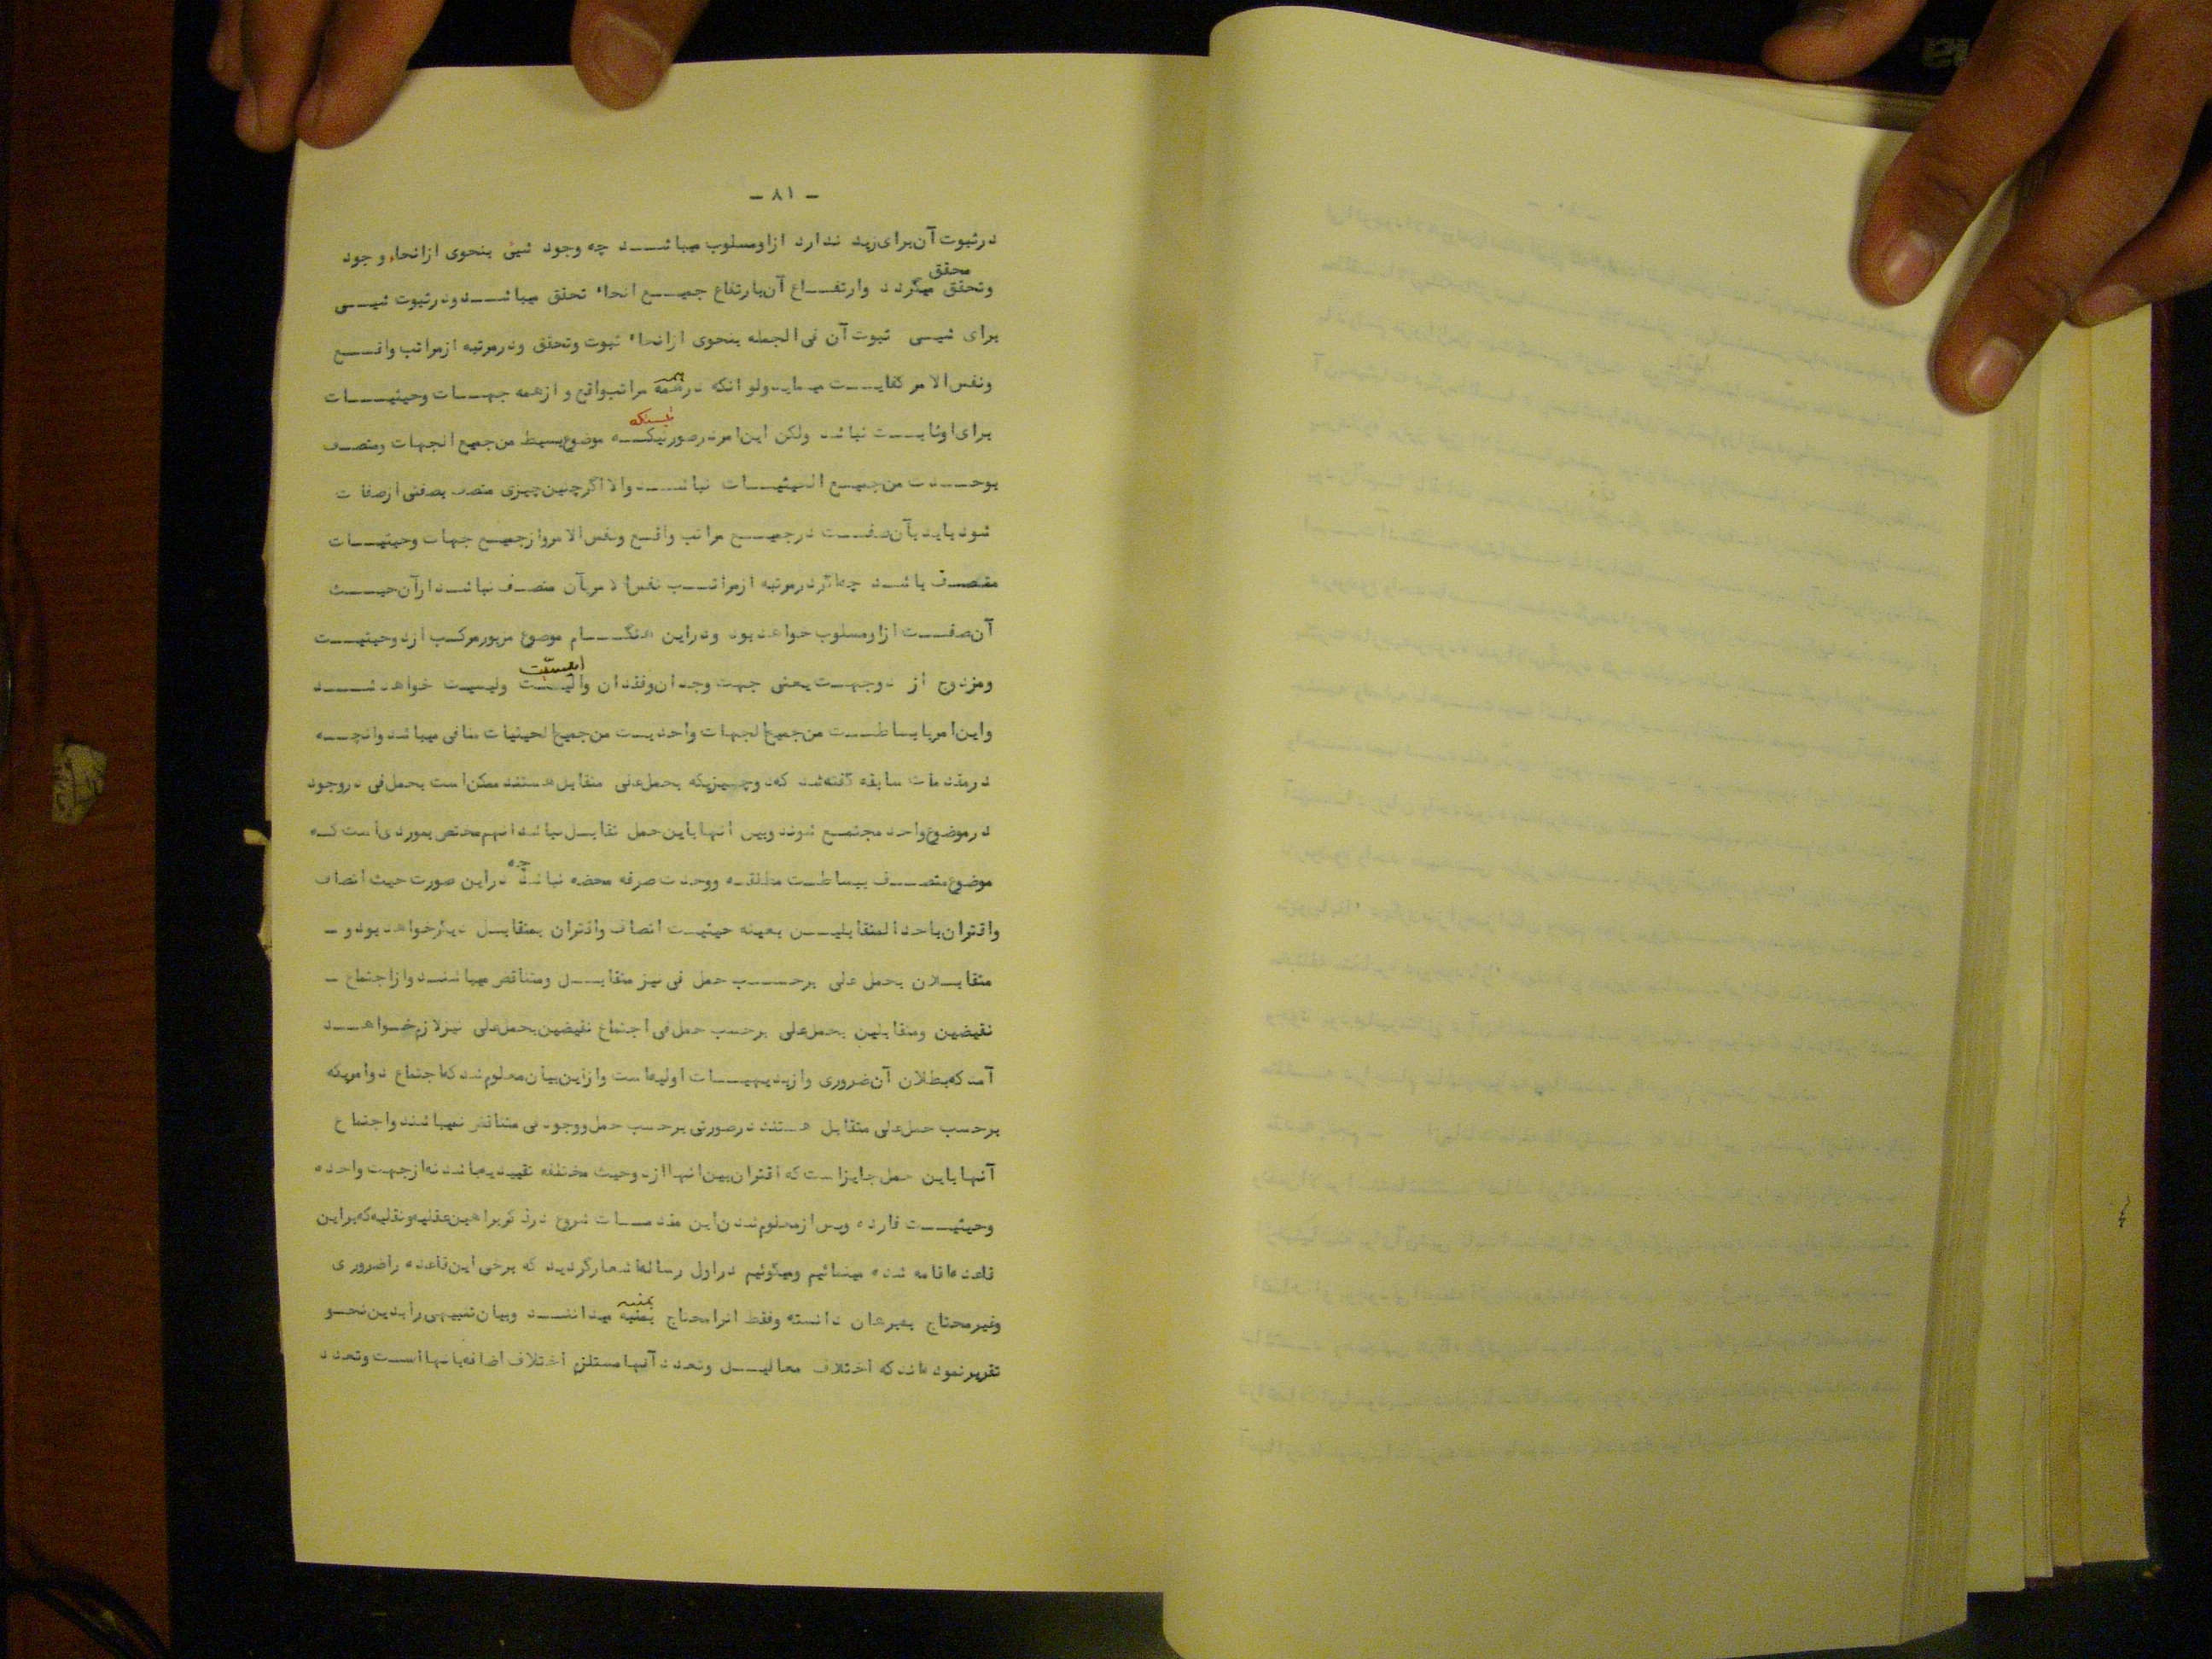 - ۸۱ -
در ثبوت آن برای زید ندارد از او مسلوب میباشد چه وجود شیئ بنحوی از انحاء وجود
محقق
وتحقق میگردد وارتفاع آن بارتفاع جمیع انحاء تحقق میباشد ودر ثبوت شیسی
برای شیسی ثبوت آن فی الجمله بنحوی از انحاء ثبوت وتحقق ودر مرتبه از مراتب واقع
ونفس الامر کفایت میماید ولو انکه در همه مراتب واقع و از همه جهات وحیثیات
برای او ثابت نباشد ولکن این امر در صورتیکه موضوع بسیط من جمیع الجهات ومتصف
بوحدت من جمیع الحیثیات نباشد والا اگر چنین چیزی متصف بصفتی از صفات
شود باید بآن صفت در جمیع مراتب واقع ونفس الامر واز جمیع جهات وحیثیات
متصف باشد چه اگر در مرتبه از مراتب نفس الامر بآن متصف نباشد از آن حیث
آن صفت از او مسلوب خواهد بود ودر این هنگام موضوع مزبور مرکب از دو حیثیت
ومزدوج از دو جهت یعنی جهت وجدان وفقدان و ولیسیت خواهد شد
واین امر با بساطت من جمیع الجهات واحدیت من جمیع الحیثیات منافی میباشد وانچه
در مقدمات سابقه گفته شد که دو چیزیکه بحمل علی متقابل هستند ممکن است بحمل فی در وجود
در موضوع واحد مجتمع شوند وبین انها باین حمل تقابل نباشد انهم مختص بموردی است که
چه
موضوع متصف ببساطت مطلقه ووحدت صرفه محضه نباشد در این صورت حیث اتصاف
واقتران باحد المتقابلین بعینه حیثیت اتصاف واقتران بمتقابل دیگر خواهد بود و -
متقابلان بحمل علی برحسب حمل فی نیز متقابل ومتناقض میباشند واز اجتماع -
نقیضین ومتقابلین بحمل علی برحسب حمل فی اجتماع نقیضین بحمل علی نیز لازم خواهد
آمد که بطلان آن ضروری واز بدیهیات اولیه است واز این بیان معلوم شد که اجتماع دو امریکه
برحسب حمل علی متقابل هستند در صورتی برحسب حمل ووجود فی متناقض نمیباشند واجتماع
آنها باین حمل جایز است که اقتران بین انها از دو حیث مختلفه تقییدیه باشد نه از جهت واحده
وحیثیت فارده وپس از معلوم شدن این مقدمات شروع در ذکر براهین عقلیه ونقلیه که بر این
قاعده اقامه شده مینمائیم ومیگوئیم در اول رساله اشعار گردید که برخی این قاعده را ضروری
وغیر محتاج به برهان دانسته وفقط انرا محتاج بمنبه میدانند وبیان تنبیهی را بدین نحو
تقریر نموده اند که اختلاف معالیل وتعدد آنها مستلزم اختلاف اضافه بانها است وتعدد